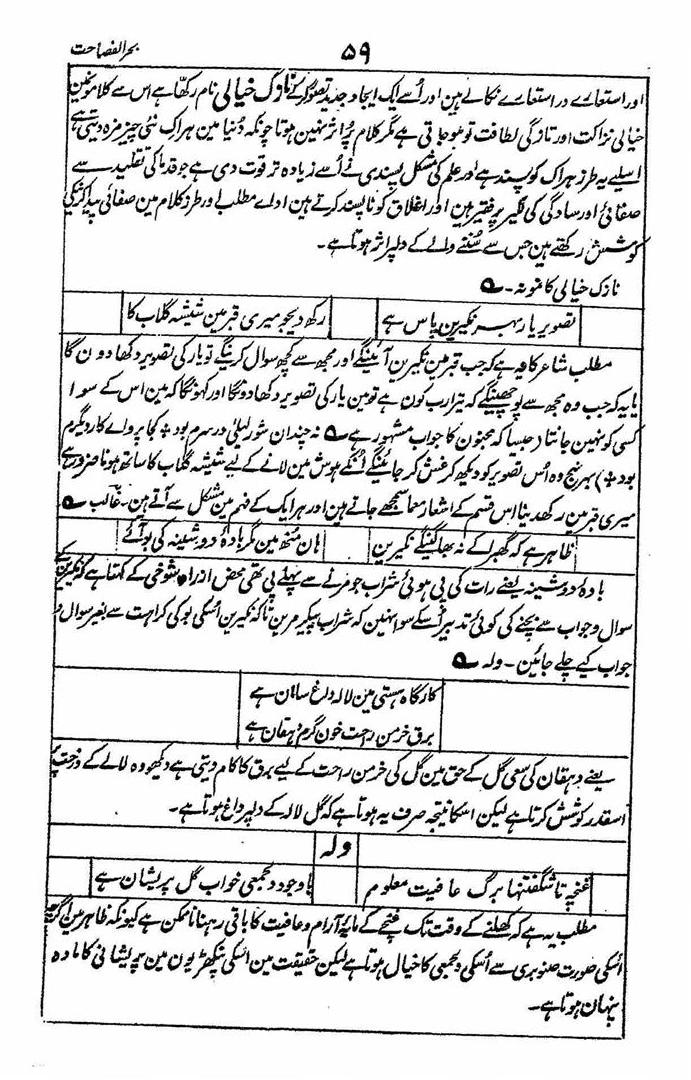 بحر الفصاحت
۵۹
اور استعارے در استعارے نکالے ہین اور اُسے ایک ایجاد جدید تصور کرکے نازک خیالی نام رکھا ہے اس سے کلام مین
خیالی نزاکت اور تازگی لطافت تو ہوجاتی ہے مگر کلام پُر اثر نہین ہوتا چونکہ دُنیا مین ہر اک نئی چیز مزہ دیتی ہے
اسلیے یہ طرز ہر اک کو پسند ہے اور علم کی مشکل پسندی نے اُسے زیادہ تر قوت دی ہے جو قدما کی تقلید سے
صفائی اور سادگی کی لکیر پر فقیر ہین اور اغلاق کو ناپسند کرتے ہین اداے مطلب اور طرز کلام مین صفائی پیدا کرنیکی
کوشش رکھتے ہین جس سے سُننے والے کے دلپر اثر ہوتا ہے۔
نازک خیالی کا نمونہ۔
تصویر یار بہر نکیرین پاس ہے رکھ دیجو میری قبر مین شیشہ گلاب کا
مطلب شاعر کا یہ ہے کہ جب قبر مین نکیرین آئینگے اور مجھ سے کچھ سوال کرینگے تو یار کی تصویر دکھادون گا
یا یہ کہ جب وہ مجھ سے پوچھینگے کہ تیرا رب کون ہے تو مین یار کی تصویر دکھادونگا اور کہونگا کہ مین اس کے سوا
کسی کو نہین جانتا (جیسا کہ مجنون کا جواب مشہور ہے نہ چندان شور لیلیٰ در سرم بود * کجا پرواے کار دیگرم
بود *) بہر نہج وہ اُس تصویر کو دیکھ کر غش کر جائینگے اُنکے ہوش مین لانے کے لیے شیشہ گلاب کا ساتھ ہونا ضرور ہے
میری قبر مین رکھدینا اس قسم کے اشعار معما سمجھے جاتے ہین اور ہر ایک کے فہم مین مشکل سے آتے ہین۔ غالب
ظاہر ہے کہ گھبرا کے نہ بھاگینگے نکیرین ہان مُنھ مین مگر بادۂ دوشینہ کی بو آئے
بادۂ دوشینہ یعنے رات کی پی ہوئی شراب جو مرنے سے پہلے پی تھی محض از راہ شوخی کے کہتا ہے کہ نکیرین کے
سوال وجواب سے بچنے کی کوئی تدبیر اسکے سوا نہین کہ شراب پیکر مرین تاکہ نکیرین اُسکی بو کی کراہت سے بغیر سوال و
جواب کیے چلے جائین۔ ولہ
کارگاہ ہستی مین لالہ داغ سامان ہے
برق خرمن راحت خون گرم دہقان ہے
یعنے دہقان کی سعی گل کے حق مین گل کی خرمن راحت کے لیے برق کا کام دیتی ہے دیکھو وہ لالے کے درخت پر
اسقدر کوشش کرتا ہے لیکن اسکا نتیجہ صرف یہ ہوتا ہے کہ گل لالہ کے دلپر داغ ہوتا ہے۔
ولہ
غنچہ تا شگفتنہا برگ عافیت معلوم باوجود دلجمعی خواب گل پریشان ہے
مطلب یہ ہے کہ کھلنے کے وقت تک غنچے کے مایہ آرام وعافیت کا باقی رہنا ناممکن ہے کیونکہ ظاہر مین اگرچہ
اُسکی صورت صنوبری سے اُسکی دلجمعی کا خیال ہوتا ہے لیکن حقیقت مین اسکی پنکھڑیون مین پریشانی کا مادہ
پنہان ہوتا ہے۔